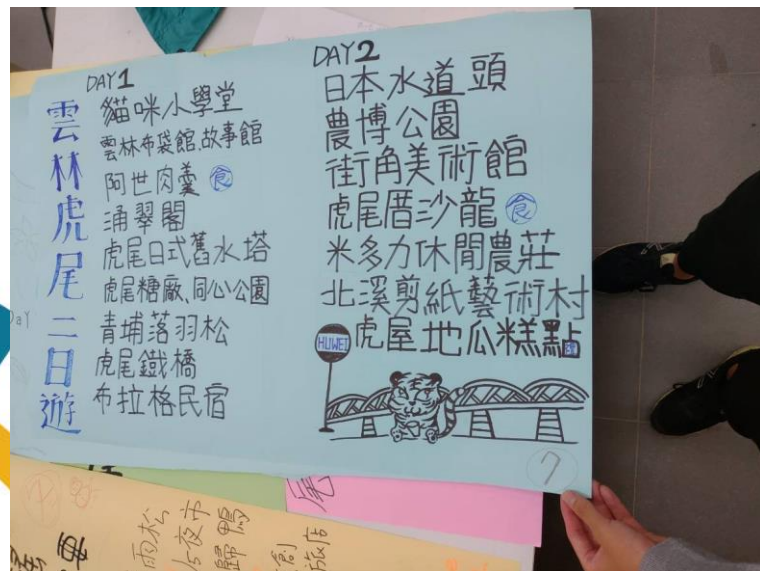 雲林虎尾二日遊
DAY1
貓咪小學堂
雲林布袋館、故事館
阿世肉羹 食
涌翠閣
虎尾日式舊水塔
虎尾糖廠、同心公園
青埔落羽松
虎尾鐵橋
布拉格民宿
DAY2
日本水道頭
農博公園
街角美術館
虎尾厝沙龍 食
米多力休閒農莊
北溪剪紙藝術村
虎屋地瓜糕點
HUWEI
7
Day
尾
雨松
夜市
歸鴨
創
旅店